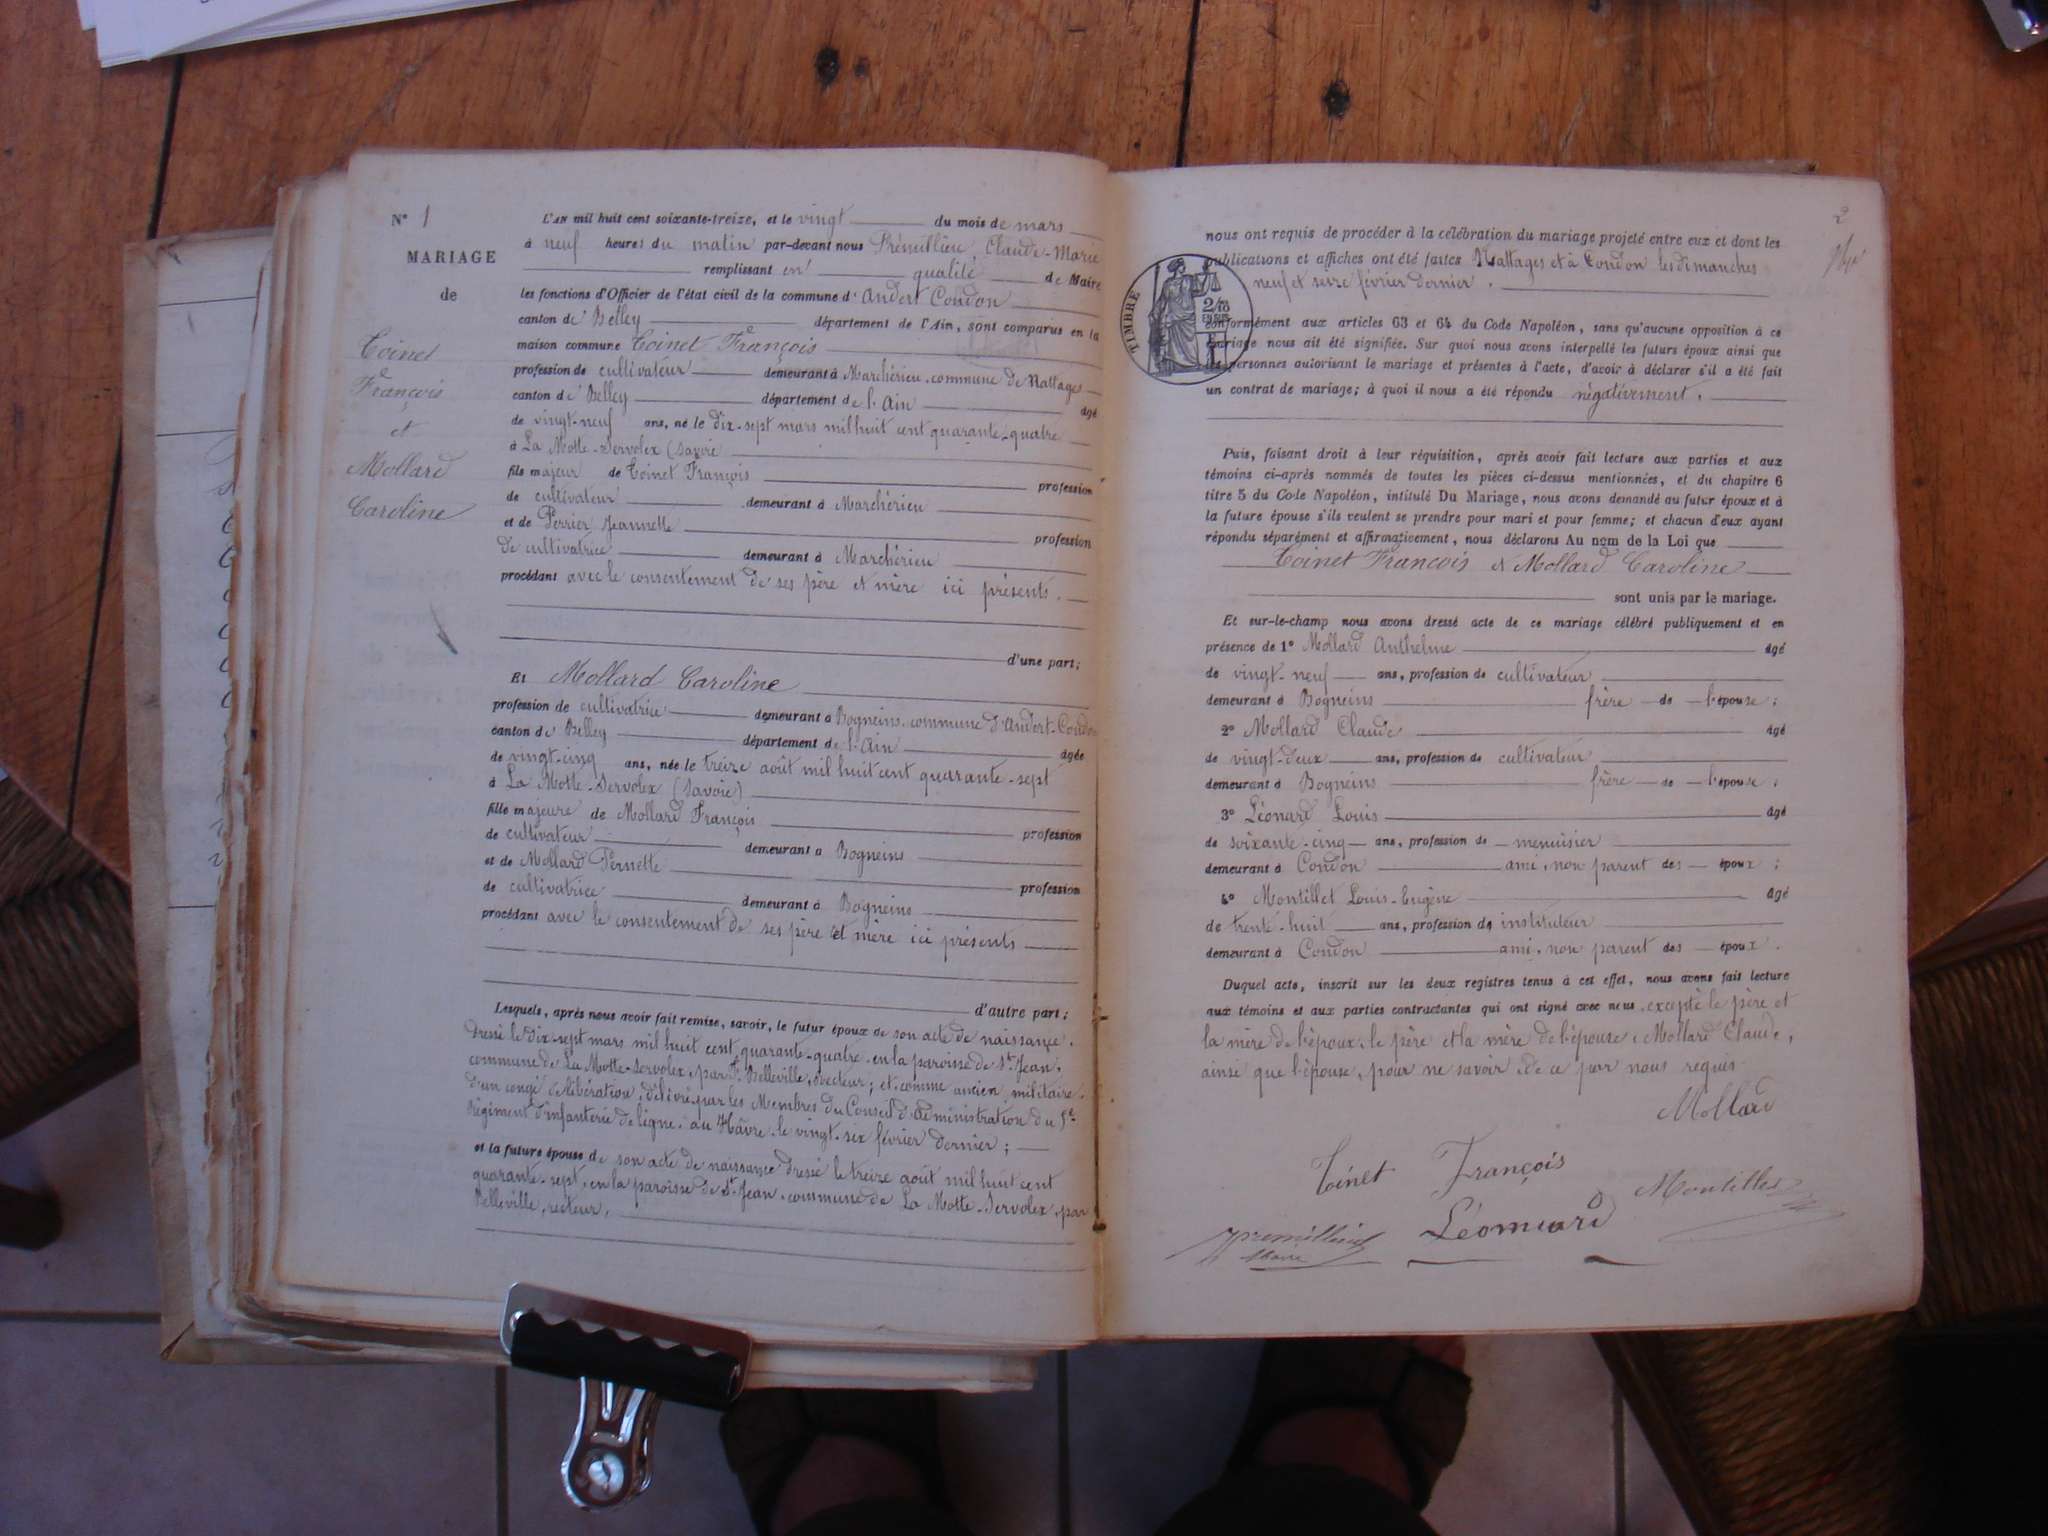 N° 1
MARIAGE
de
Toinet
François
et
Mollard
Caroline
L'AN mil huit cent soixante-treize, et le vingt du mois de mars
à neuf heures du matin par-devant nous Prémillieu, Claude-Marie
remplissant en qualité de Maire
les fonctions d'Officier de l'état civil de la commune d'Andert Condon
canton de Belley département de l'Ain, sont comparus en la
maison commune Toinet François
profession de cultivateur demeurant à Marchérieu, commune de Nattages
canton de Belley département de l'Ain âgé
de vingt-neuf ans, né le dix-sept mars mil huit cent quarante-quatre
à La Motte-Servolex (Savoie
fils majeur de Toinet François profession
de cultivateur demeurant à Marchérieu
et de Perrier Jeannette profession
de cultivatrice demeurant à Marchérieu
procédant avec le consentement de ses père et mère ici présents.
d'une part;
Et Mollard Caroline
profession de cultivatrice demeurant à Bogneins, commune d'Andert-Condon
canton de Belley département de l'Ain âgée
de vingt-cinq ans, née le treize août mil huit cent quarante-sept
à La Motte-Servolex (Savoie)
fille majeure de Mollard François profession
de cultivateur demeurant à Bogneins
et de Mollard Pernette profession
de cultivatrice demeurant à Bogneins
procédant avec le consentement de ses père et mère ici présents
d'autre part;
Lesquels, après nous avoir fait remise, savoir, le futur époux de son acte de naissance,
dressé le dix-sept mars mil huit cent quarante-quatre, en la paroisse de St Jean,
commune de La Motte-Servolex, par Belleville, recteur; et, comme ancien militaire,
d'un congé de libération, délivré par les Membres du Conseil d'administration du 5e
Régiment d'infanterie de ligne, au Hâvre, le vingt-six février dernier;
et la future épouse de son acte de naissance dressé le treize août mil huit cent
quarante-sept, en la paroisse de St Jean, commune de La Motte-Servolex, par
Belleville, recteur,
2
nous ont requis de procéder à la célébration du mariage projeté entre eux et dont les
publications et affiches ont été faites Nattages et à Condon les dimanches
neuf et seize février dernier.
TIMBRE
2/10
EN SUS
conformément aux articles 63 et 64 du Code Napoléon, sans qu'aucune opposition à ce
mariage nous ait été signifiée. Sur quoi nous avons interpellé les futurs époux ainsi que
les personnes autorisant le mariage et présentes à l'acte, d'avoir à déclarer s'il a été fait
un contrat de mariage; à quoi il nous a été répondu négativement.
Puis, faisant droit à leur réquisition, après avoir fait lecture aux parties et aux
témoins ci-après nommés de toutes les pièces ci-dessus mentionnées, et du chapitre 6
titre 5 du Code Napoléon, intitulé Du Mariage, nous avons demandé au futur époux et à
la future épouse s'ils veulent se prendre pour mari et pour femme; et chacun d'eux ayant
répondu séparément et affirmativement, nous déclarons Au nom de la Loi que
Toinet François et Mollard Caroline
sont unis par le mariage.
Et sur-le-champ nous avons dressé acte de ce mariage célébré publiquement et en
présence de 1° Mollard Anthelme âgé
de vingt-neuf ans, profession de cultivateur
demeurant à Bogneins frère de l'épouse;
2° Mollard Claude âgé
de vingt-deux ans, profession de cultivateur
demeurant à Bogneins frère de l'épouse;
3° Léonard Louis âgé
de soixante-cinq ans, profession de menuisier
demeurant à Condon ami, non parent des époux;
4° Montillet Louis-Eugène âgé
de trente-huit ans, profession de instituteur
demeurant à Condon ami, non parent des époux.
Duquel acte, inscrit sur les deux registres tenus à cet effet, nous avons fait lecture
aux témoins et aux parties contractantes qui ont signé avec nous, excepté le père et
la mère de l'époux, le père et la mère de l'épouse, Mollard Claude,
ainsi que l'épouse, pour ne savoir, de ce par nous requis
Mollard
Toinet François
Montillet
Premillieu
Maire
Léonard